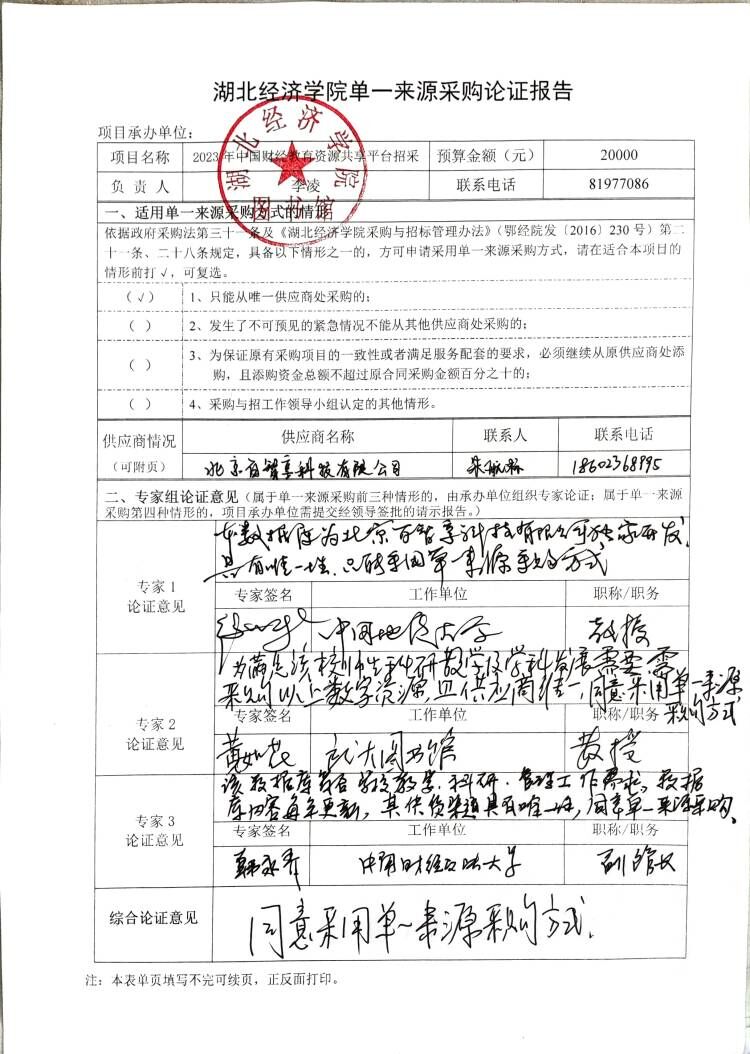 湖北经济学院单一来源采购论证报告
项目承办单位:
湖北经济学院
图书馆
项目名称 2023年中国财经教育资源共享平台招采 预算金额（元） 20000
负责人 李凌 联系电话 81977086
一、适用单一来源采购方式的情形
依据政府采购法第三十一条及《湖北经济学院采购与招标管理办法》（鄂经院发〔2016〕230号）第二
十一条、二十八条规定，具备以下情形之一的，方可申请采用单一来源采购方式，请在适合本项目的
情形前打√，可复选。
（√） 1、只能从唯一供应商处采购的；
（ ） 2、发生了不可预见的紧急情况不能从其他供应商处采购的；
（ ） 3、为保证原有采购项目的一致性或者满足服务配套的要求，必须继续从原供应商处添
购，且添购资金总额不超过原合同采购金额百分之十的；
（ ） 4、采购与招工作领导小组认定的其他情形。
供应商情况 供应商名称 联系人 联系电话
（可附页） 北京百智享科技有限公司 18602368995
二、专家组论证意见（属于单一来源采购前三种情形的，由承办单位组织专家论证；属于单一来源
采购第四种情形的，项目承办单位需提交经领导签批的请示报告。）
本数据库为北京百智享科技有限公司独家研发，
具有唯一性，只能采用单一来源采购方式
专家1
论证意见
专家签名 工作单位 职称/职务
中国地质大学 教授
为满足该校师生科研教学及学科发展需要，需
采购以上数字资源，且供应商唯一，同意采用单一来源
采购方式
专家2
论证意见
专家签名 工作单位 职称/职务
黄如花 武大图书馆 教授
该数据库符合学校教学、科研、管理工作需求，数据
库内容每年更新，其供货渠道具有唯一性，同意单一来源采购。
专家3
论证意见
专家签名 工作单位 职称/职务
中南财经政法大学 副馆长
综合论证意见 同意采用单一来源采购方式。
注：本表单页填写不完可续页，正反面打印。